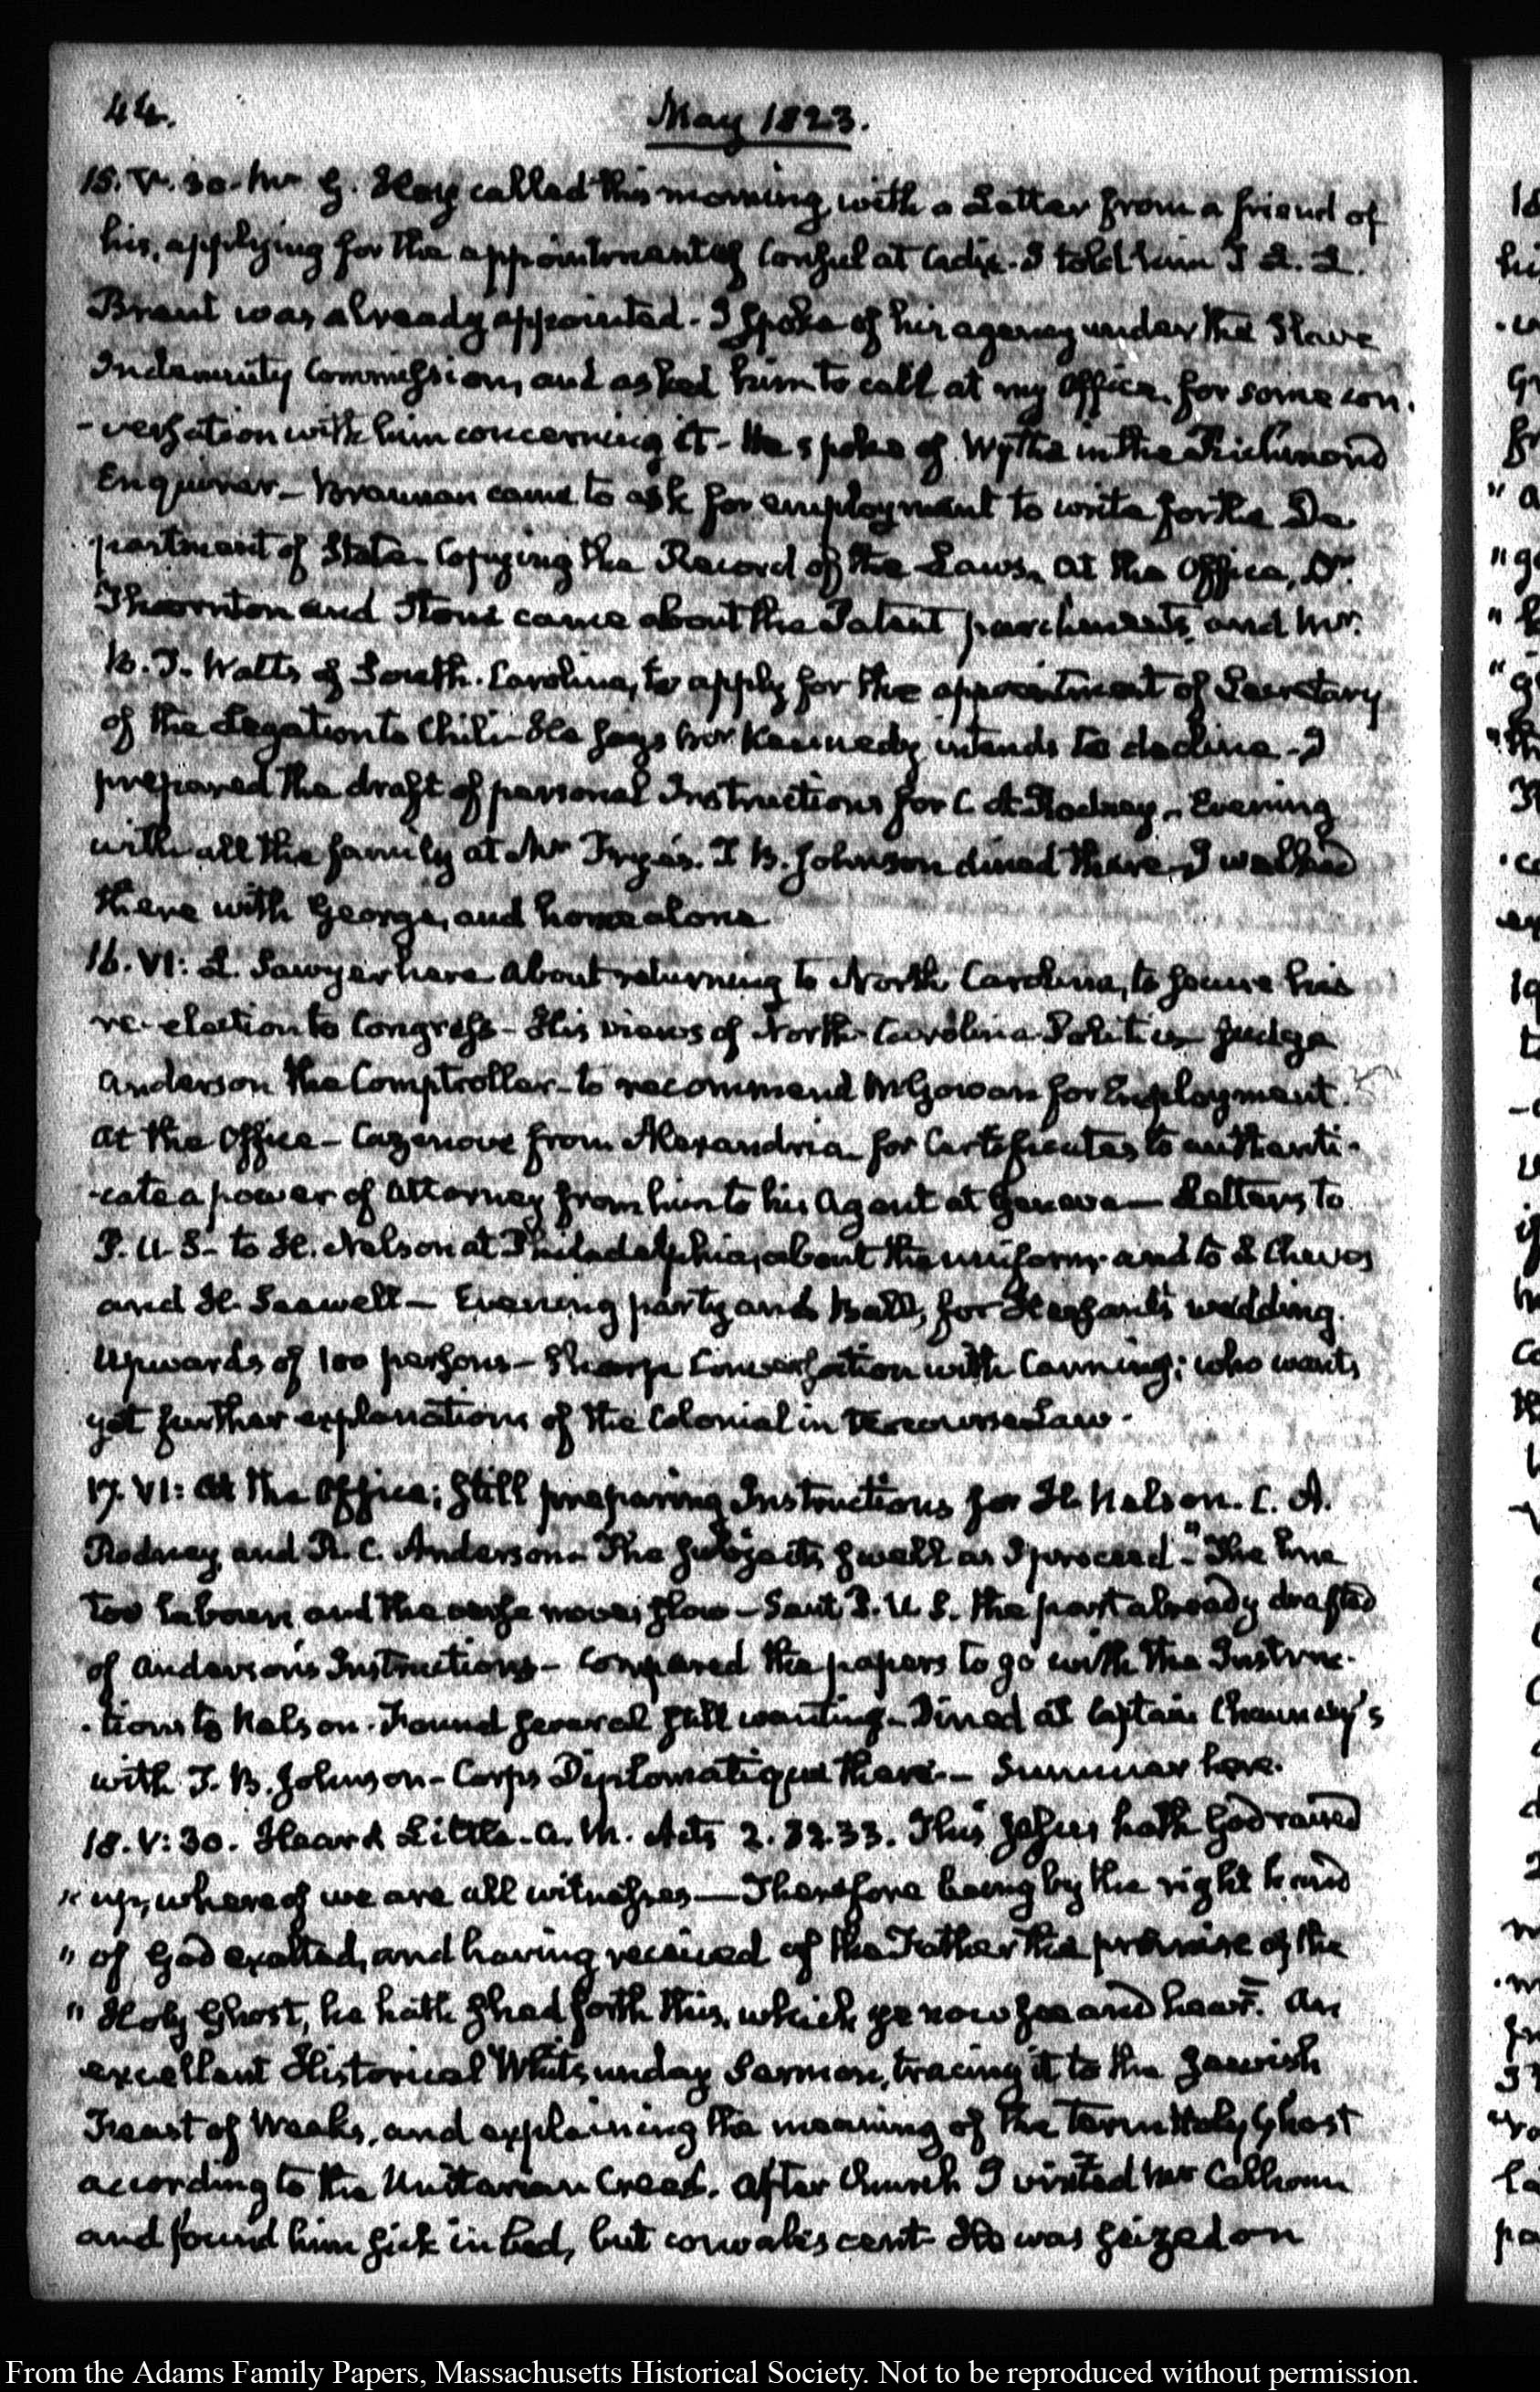 44.
May 1823.
15. V.30. Mr G. Hay called this morning, with a Letter from a friend of
his, applying for the appointment of Consul at Cadiz. I told him T. L. L.
Brent was already appointed. I spoke of his agency under the Slave
Indemnity Commission, and asked him to call at my Office for some con-
-versation with him concerning it. He spoke of Wythe in the Richmond
Enquirer. Brannan came to ask for employment to write for the De
partment of State. Copying the Record of the Laws. At the Office, Dr.
Thornton and Stone came about the Patent parchments, and Mr.
B. T. Watts of South-Carolina, to apply for the appointment of Secretary
of the Legation to Chili. He says Mr Kennedy intends to decline. I
prepared the draft of personal Instructions for C. A. Rodney. Evening
with all the family at Mr Frye's. T. B. Johnson dined there. I walked
there with George, and home alone
16. VI: L. Sawyer here about returning to North Carolina, to secure his
re-election to Congress. His views of North-Carolina Politics. Judge
Anderson the Comptroller to recommend McGowan for Employment.
At the Office. Cazenove from Alexandria for Certificates to authenti-
-cate a power of Attorney from him to his Agent at Geneva. Letters to
P.U.S. to H. Nelson at Philadelphia, about the uniform. and to L Cheves
and H. Seawell. Evening party and Ball, for wedding.
Upwards of 100 persons. Sharp Conversation with Canning; who wants
yet further explanations of the Colonial intercourse Law.
17. VI: At the Office; still preparing Instructions for H. Nelson. C. A.
Rodney, and R. C. Anderson. The subjects swell as I proceed. "The line
too labours and the verse moves slow. Sent P.U.S. the part already drafted
of Anderson's Instructions. Compared the papers to go with the Instruc-
-tions to Nelson. Found several still wanting. Dined at Captain Chauncey's
with T. B. Johnson. Corps Diplomatique there. Summer here.
18. V:30. Heard Little. A.M. Acts 2.32.33. This Jesus hath God raised
" up, whereof we are all witnesses—Therefore being by the right hand
" of God exalted, and having received of the Father the promise of the
" Holy Ghost, he hath shed forth this, which ye now see and hear". An
excellent Historical Whitsunday Sermon, tracing it to the Jewish
Feast of Weeks, and explaining the meaning of the term Holy Ghost
according to the Unitarian Creed. After Church I visited Mr Calhoun
and found him sick in bed, but convalescent. He was seized on
From the Adams Family Papers, Massachusetts Historical Society. Not to be reproduced without permission.